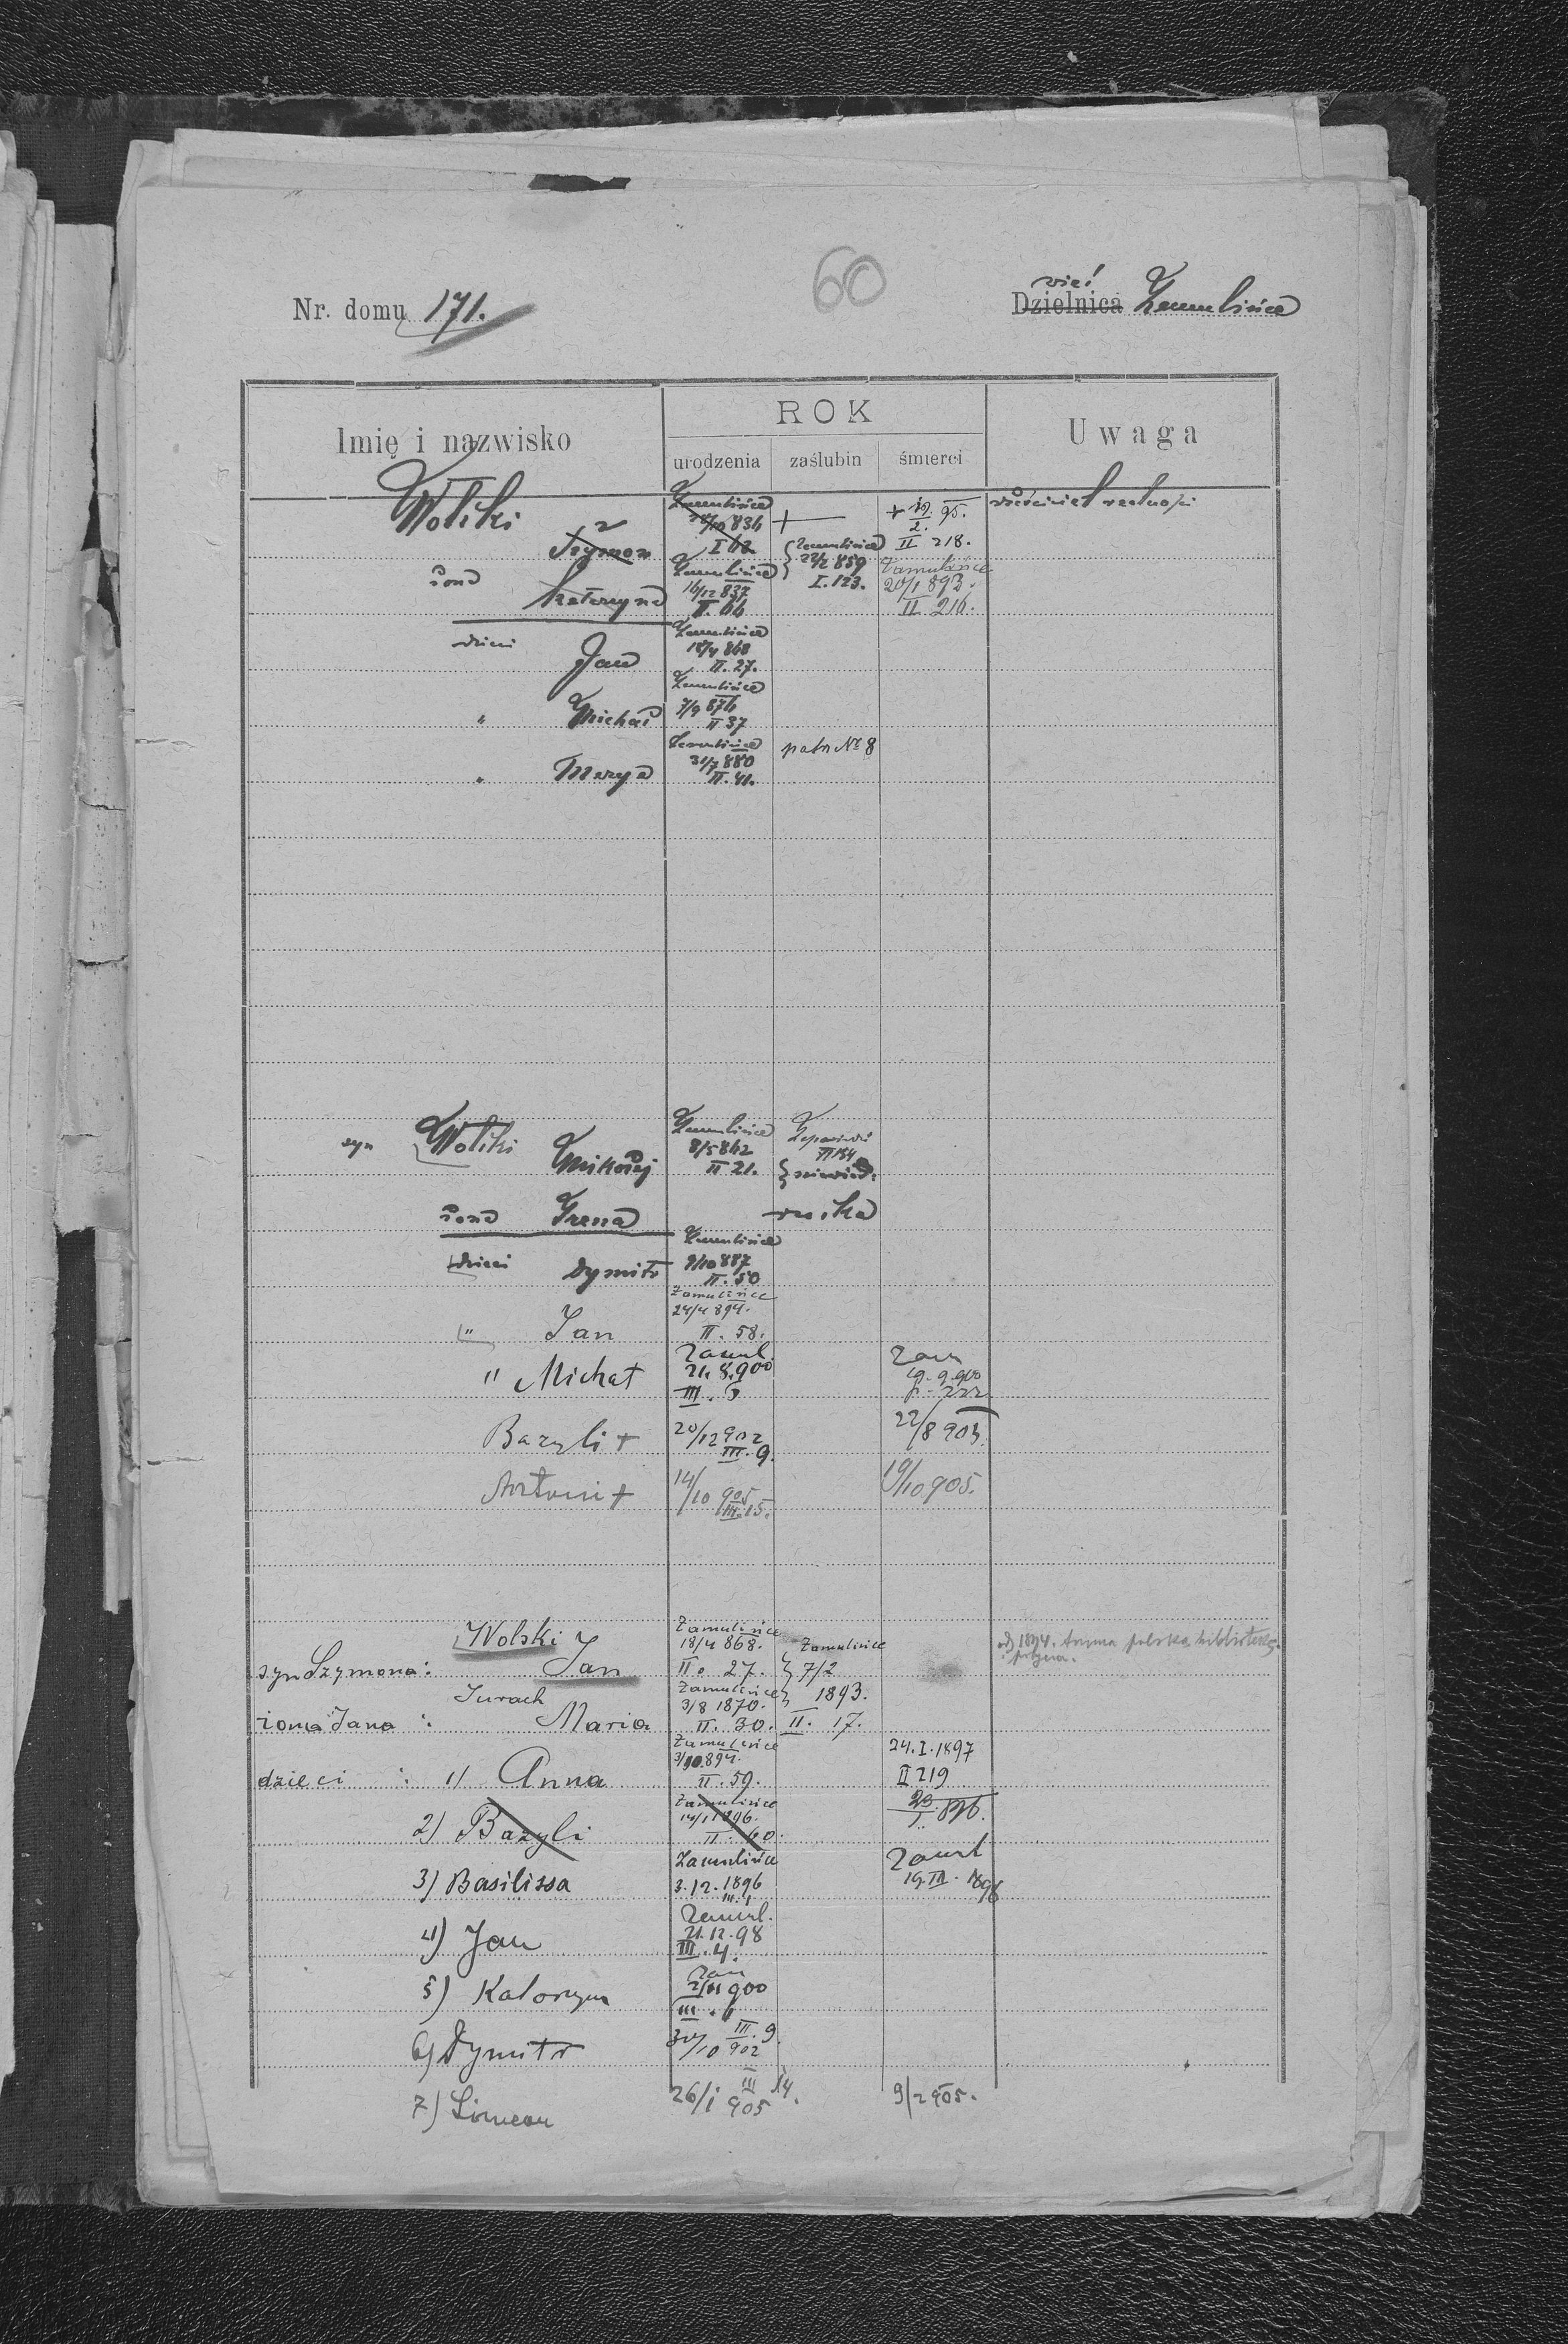 60
Nr. domu 171.
wieś
Dzielnica Zamulińce
Imię i nazwisko
ROK
urodzenia zaślubin śmierci
Uwaga
Wolski Szymon Zamulińce 834 I + 19. 95. właściciel realności
2. II 218.
żona Katarzyna Zamulińce 16/12 837 Zamulińce 22/2 859 I. 123. Zamulińce 20/1 893. II 216.
dzieci Jan Zamulińce 18/4 868 II. 27.
" Michał Zamulińce 7/9 874 II 37
" Marya Zamulińce 31/7 880 II. 41. patrz № 8
syn Wolski Mikołaj Zamulińce 8/5 862 II 21.
żona Irena
dzieci Dymitr Zamulińce 9/10 887 II. 50
" Jan Zamulińce 24/4 894. II. 58.
" Michał Zamul. 21.8.900 III. Zam 19.9.900
Bazyli + 20/12 902 III. 9. 22/8 903.
Antoni + 14/10 905 III. 15. 19/10 905.
Wolski
syn Szymona: Jan Zamulińce 18/4 868. II. 27. Zamulińce 7/2 1893. II. 17. od 1894.
Jurach
żona Jana : Maria Zamulińce 3/8 1870. II. 30.
dzieci : 1) Anna Zamulińce 3/10.894. II. 59. 24.I.1897 II 219
2) Bazyli Zamulińce 14/1 1896. II. 60. 896.
3) Basilissa Zamulińce 3.12.1896 III. 1 Zamul 19.III.1898
4) Jan Zamul. 21.12.98 III. 4.
5) Katarzyna Zam 900 III. 6
6) Dymitr 30/10 902 III. 9.
7) Simeon 26/1 905 III 14. 9/2 905.